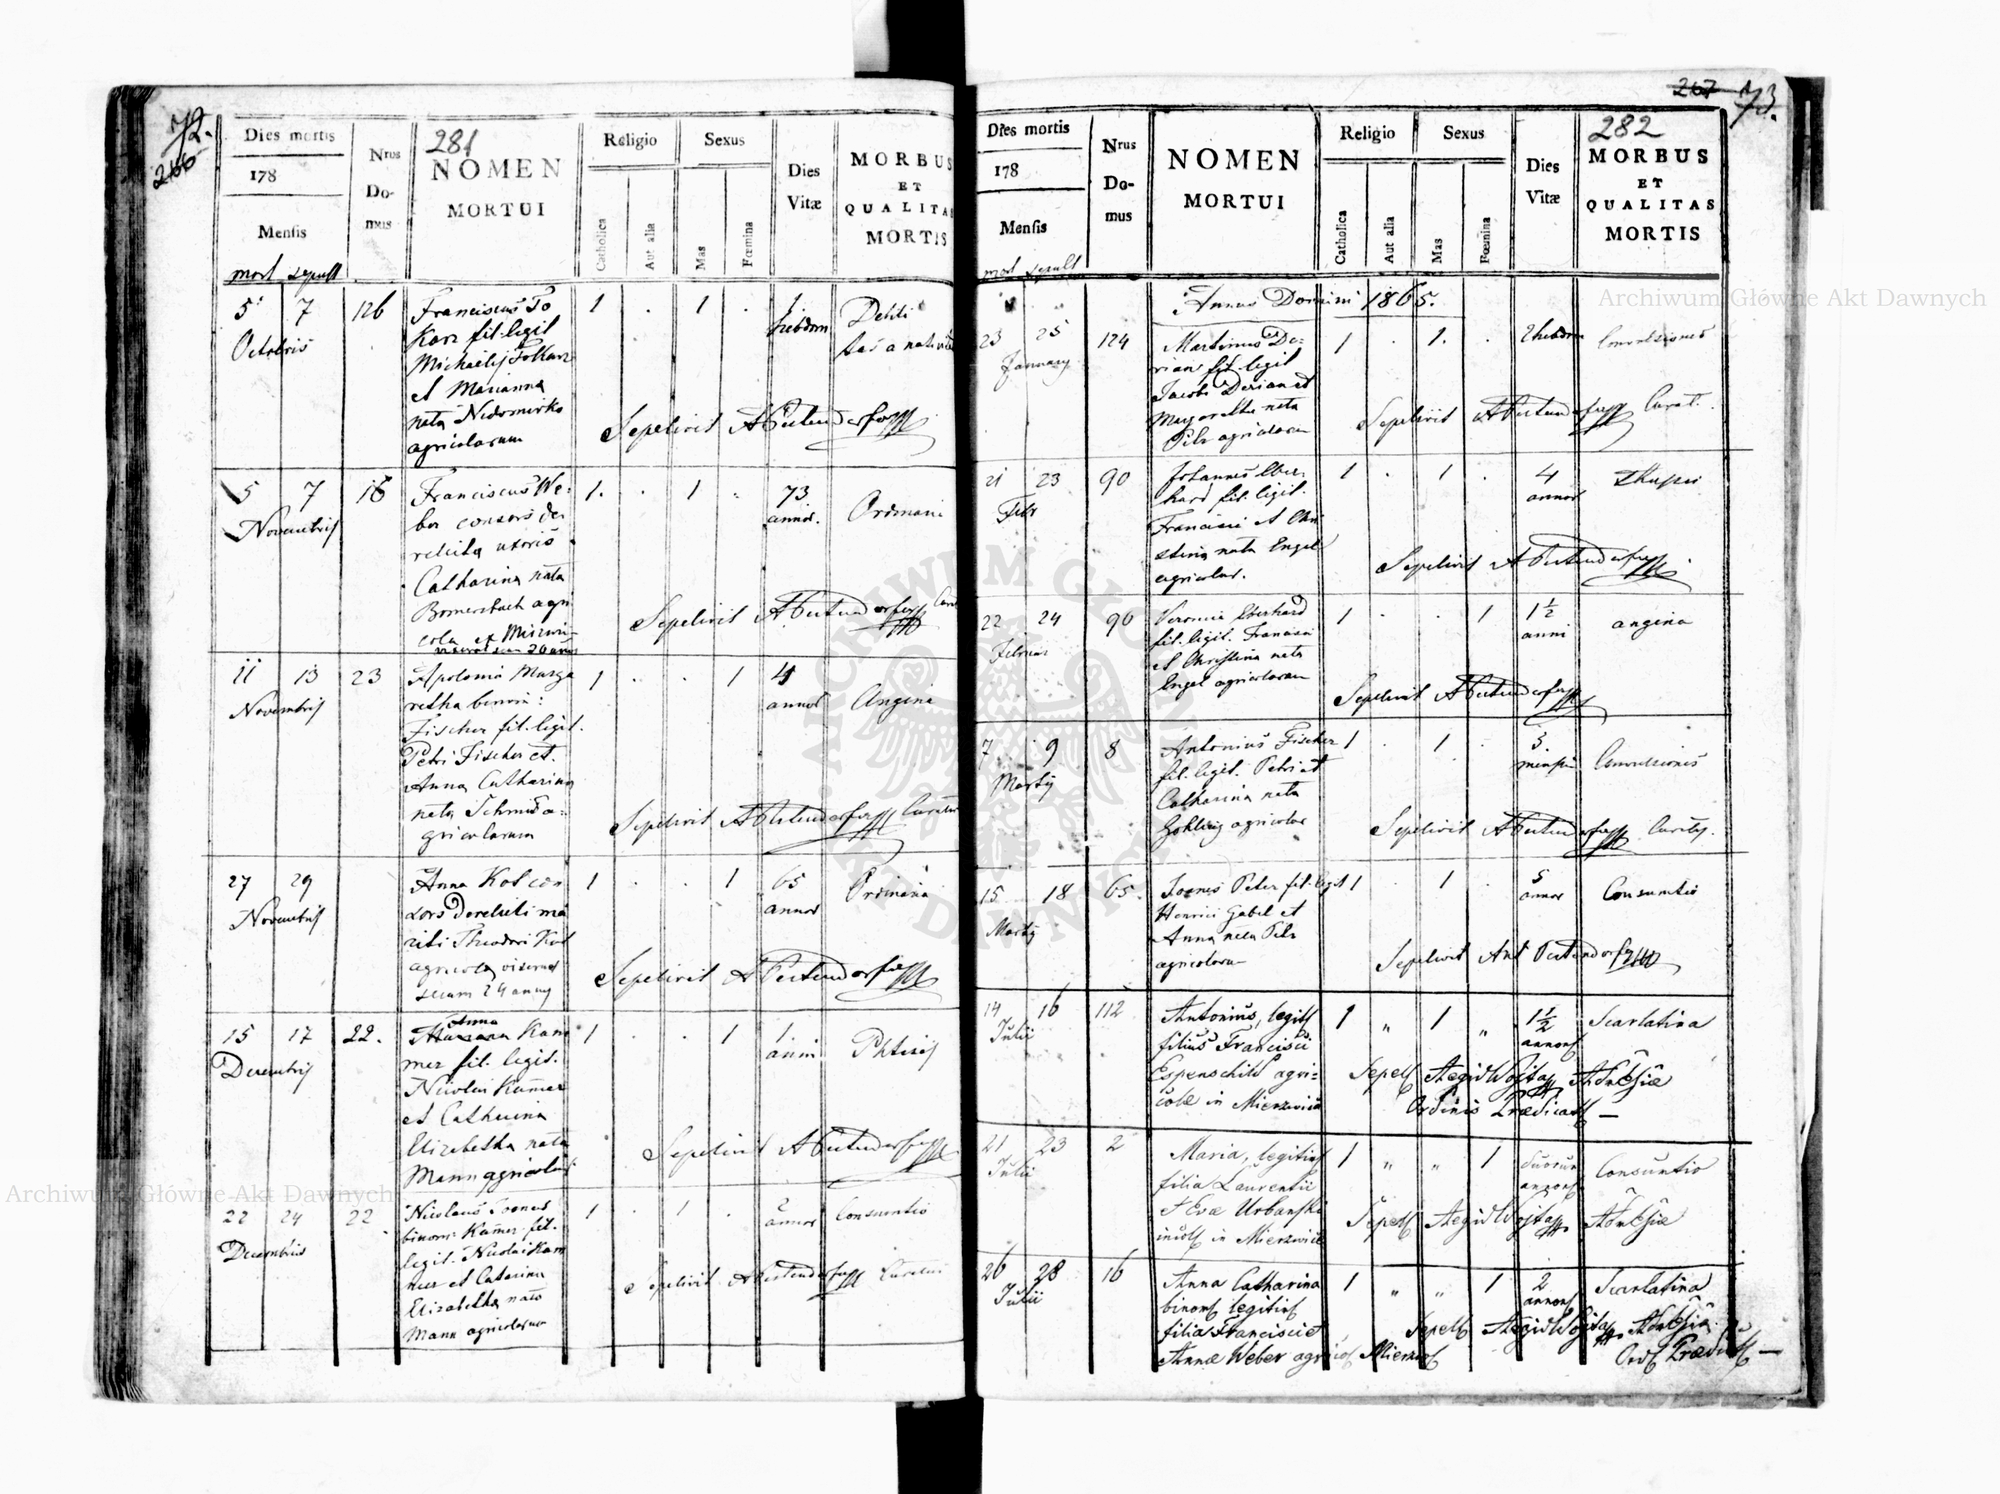 72.
266
281
Dies mortis
178
Mensis
mort sepult
Nrus
Do-
mus
NOMEN
MORTUI
Religio
Catholica
Aut alia
Sexus
Mas
Fœmina
Dies
Vitæ
MORBUS
ET
QUALITAS
MORTIS
5 7 126
Octobris
Franciscus To
karz fil. legit
Michaelis Tokarz
et Marianna
nata
agricolarum
1 . 1 .
1
hebdom
Debili
tas a nativi
Sepelivit
5 7 16
Novembris
Franciscus We-
ber consors de
relicta uxoris
Catharina nata
agri
cola ex
1. . 1 .
73
annor.
Ordinaria
Sepelivit
11 13 23
Novembris
Apolonia Marga
retha binom:
Fischer fil. legit.
Petri Fischer et
Anna Catharina
nata Schmid a=
gricolarum
1 . . 1
4
annor
Angina
Sepelivit
27 29
Novembris
Anna Kot con
sors derelicti ma
riti Theodori Kot
agricola
1 . . 1
65
annor
Ordinaria
Sepelivit
15 17 22.
Decembris
Anna Kam
mer fil. legit.
Nicolai Kamer
et Catharina
Elizabetha nata
Mann agricolar
1 . . 1
1
anni
Phtisis
Sepelivit
22 24 22
Decembris
Nicolaus Joanes
binom: Kamer fil.
legit. Nicolai Kam
mer et Catarina
Elizabetha nata
Mann agricolarum
1 . 1 .
2
annor
Consumtio
Sepelivit
267 73.
282
Dies mortis
178
Mensis
mort sepult
Nrus
Do-
mus
NOMEN
MORTUI
Religio
Catholica
Aut alia
Sexus
Mas
Fœmina
Dies
Vitæ
MORBUS
ET
QUALITAS
MORTIS
Annus Domini 1865.
23 25 124
January
Martinus Do-
rian fil. legit
Jacobi Dorian et
Margaretha nata
Pilz agricolarum
1 . 1. .
2 hebdom
Convulsiones
Sepelivit
21 23 90
Febr
Johannes Eber-
hard fil. legit.
Francisci et Chri
stina nata Engel
agricolar.
1 . 1 .
4
annor
Sepelivit
22 24 90
Februar
Veronia Eberhard
fil. legit. Francisci
et Christina nata
Engel agricolarum
1 . . 1
1 1/2
anni
angina
Sepelivit
7 9 8
Martÿ
Antonius Fischer
fil. legit. Petri et
Catharina nata
agricolar
1 . 1 .
3
mensium
Convulsiones
Sepelivit
15 18 65.
Martÿ
Joanes Peter fil. legit
Henrici Gabel et
Anna nata Pilz
agricolarum
1 . 1 .
5
annor
Consumtio
Sepelivit
14 16 112
Julii
Antonius, legit
filius Francisci
Espenschild agri=
colæ in Mierzwica
1 „ 1 „
1 1/2
annor
Scarlatina
Sepel Aegid Wojta
Ordinis Prædicat —
21 23 2
Julii
Maria, legitim
filia Laurentii
et Evæ Urbanski
in Mierzwica
1 „ „ 1
duorum
annor
Consumtio
Sepel Aegid Wojta
26 28 16
Julii
Anna Catharina
binom legitim
filia Francisci et
Annæ Weber agricol Mierzwi
1 „ „ 1
2
annor
Scarlatina
Sepel Aegid Wojta
Ord Prædic —
ARCHIWUM GŁÓWNE AKT DAWNYCH
Archiwum Główne Akt Dawnych
Archiwum Główne Akt Dawnych